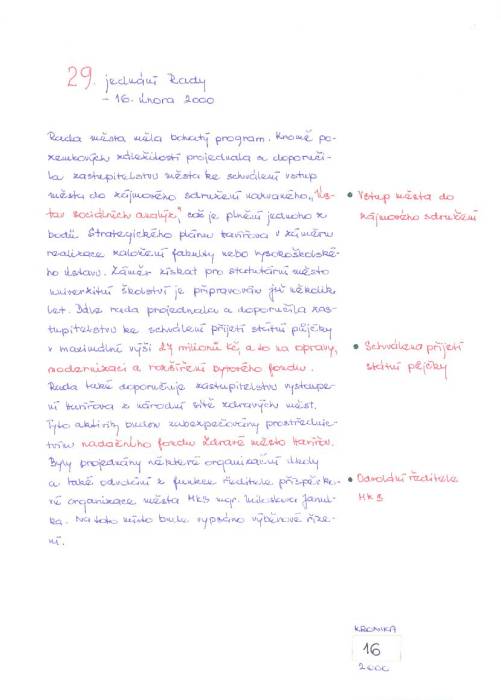 29. jednání Rady
- 16. února 2000
Rada města měla bohatý program. Kromě po-
zemkových záležitostí projednala a doporuči-
la zastupitelstvu města ke schválení vstup
města do zájmového sdružení nazvaného „Ús-
tav sociálních analýz", což je plnění jednoho z
bodů Strategického plánu Havířova v záměru
realizace založení fakulty nebo vysokoškolské-
ho ústavu. Záměr získat pro statutární město
univerzitní školství je připravován již několik
let. Dále rada projednala a doporučila zas-
tupitelstvu ke schválení přijetí státní půjčky
v maximální výši 27 milionů Kč, a to na opravy,
modernizaci a rozšíření bytového fondu.
Rada také doporučuje zastupitelstvu vystoupe-
ní Havířova z národní sítě zdravých měst.
Tyto aktivity budou zabezpečovány prostřednic-
tvím nadačního fondu Zdravé město Havířov.
Byly projednány některé organizační
a také odvolání z funkce ředitele příspěvko-
vé organizace města MKS Mgr. Miloslava
Na toto místo bude vypsáno výběrové říze-
ní.
• Vstup města do
zájmového sdružení
• Schváleno přijetí
státní půjčky
• Odvolání ředitele
MKS
KRONIKA
16
2000